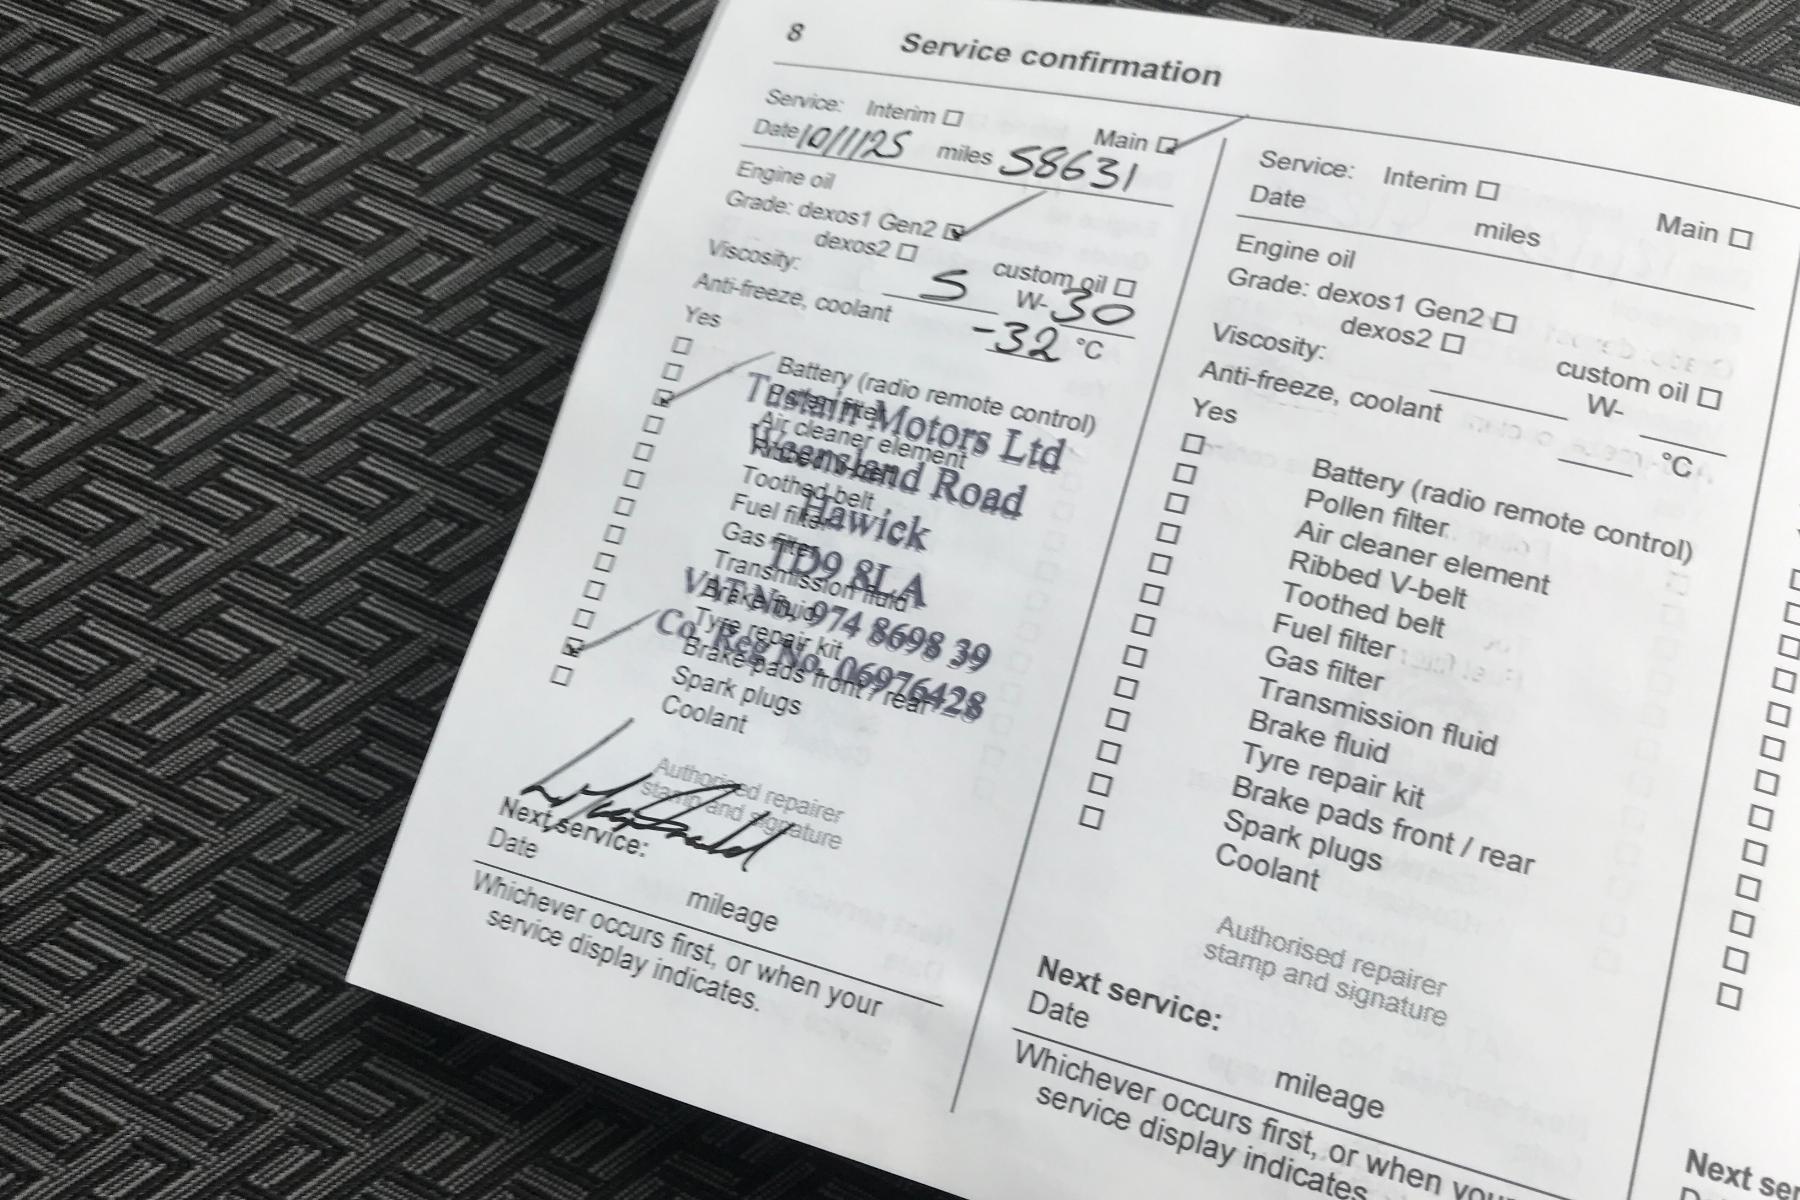 8 Service confirmation
Service: Interim Main
Date 10/1/25 miles 58631
Engine oil
Grade: dexos1 Gen2
dexos2 custom oil
Viscosity: 5 W-30
Anti-freeze, coolant -32 °C
Yes
Battery (radio remote control)
Pollen filter
Air cleaner element
Ribbed V-belt
Toothed belt
Fuel filter
Gas filter
Transmission fluid
Brake fluid
Tyre repair kit
Brake pads front / rear
Spark plugs
Coolant
Tustain Motors Ltd
Weensland Road
Hawick
TD9 8LA
VAT No. 974 8698 39
Co. Reg No. 06976428
Authorised repairer
stamp and signature
Next service:
Date
mileage
Whichever occurs first, or when your
service display indicates.
Service: Interim Main
Date miles
Engine oil
Grade: dexos1 Gen2
dexos2 custom oil
Viscosity: W-
Anti-freeze, coolant °C
Yes
Battery (radio remote control)
Pollen filter
Air cleaner element
Ribbed V-belt
Toothed belt
Fuel filter
Gas filter
Transmission fluid
Brake fluid
Tyre repair kit
Brake pads front / rear
Spark plugs
Coolant
Authorised repairer
stamp and signature
Next service:
Date
mileage
Whichever occurs first, or when your
service display indicates.
Next se